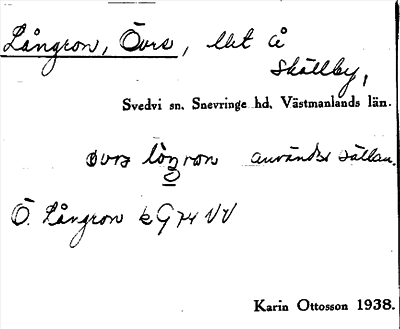 Långron, Övre, litet å
Skällby,
Svedvi sn. Snevringe hd. Västmanlands län.
övrə lòŋron används sällan.
Ö. Långron k G 74 VV
Karin Ottosson 1938.